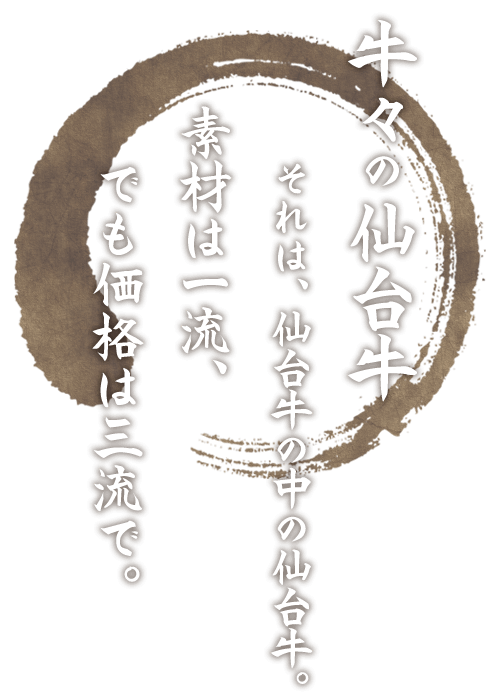 牛々の仙台牛
それは、仙台牛の中の仙台牛。
素材は一流、
でも価格は三流で。